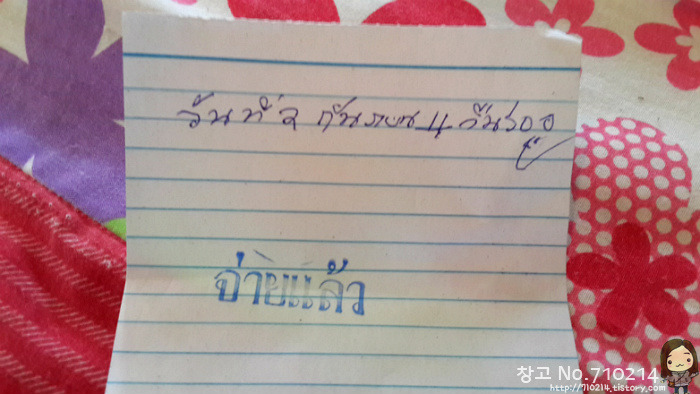 วันที่ กันยายน 4 คืน
จ่ายแล้ว
창고 No.710214
http://710214.tistory.com